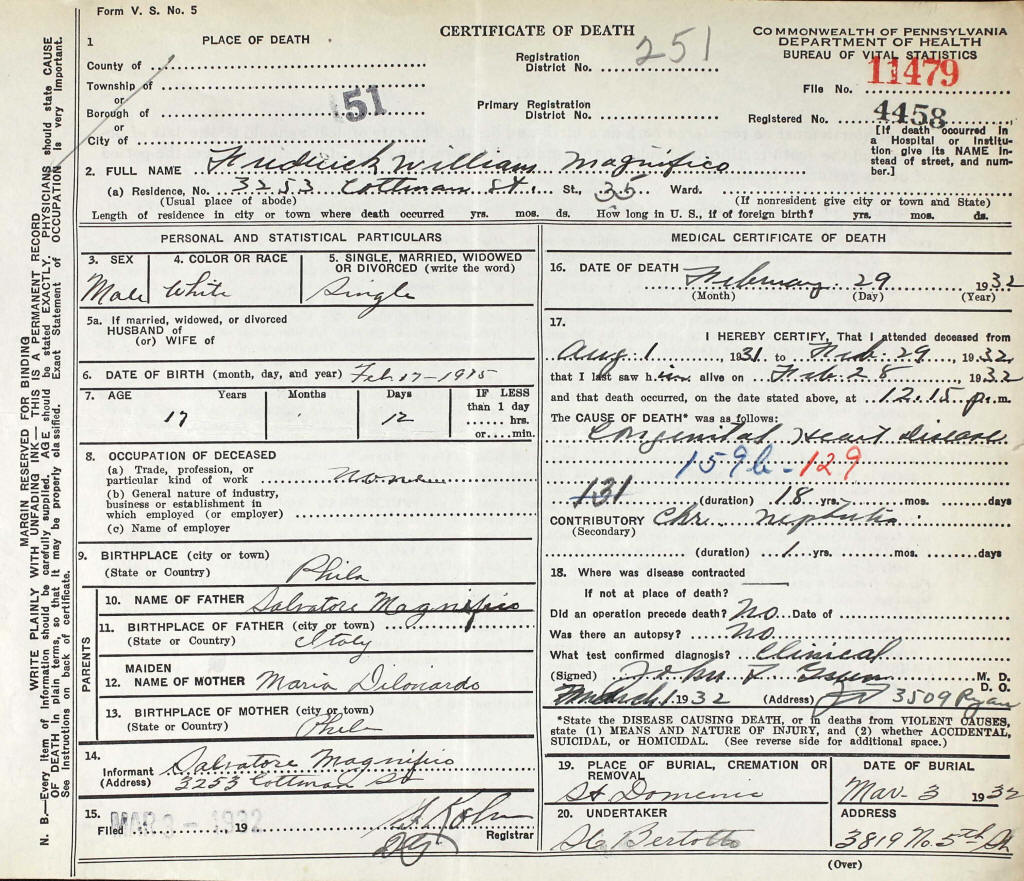 Form V. S. No. 5
CERTIFICATE OF DEATH
COMMONWEALTH OF PENNSYLVANIA
DEPARTMENT OF HEALTH
BUREAU OF VITAL STATISTICS
1 PLACE OF DEATH
County of
Township of
or
Borough of 51
or
City of
Registration District No. 251
Primary Registration District No.
File No. 11479
Registered No. 4458
[If death occurred in a Hospital or Institution give its NAME instead of street, and number.]
2. FULL NAME Fredrick William Magnifico
(a) Residence, No. 3253 Cottman St. St., 35 Ward.
(Usual place of abode) (If nonresident give city or town and State)
Length of residence in city or town where death occurred yrs. mos. ds. How long in U. S., if of foreign birth? yrs. mos. ds.
PERSONAL AND STATISTICAL PARTICULARS
3. SEX
Male
4. COLOR OR RACE
White
5. SINGLE, MARRIED, WIDOWED OR DIVORCED (write the word)
Single
5a. If married, widowed, or divorced
HUSBAND of
(or) WIFE of
6. DATE OF BIRTH (month, day, and year) Feb 17-1915
7. AGE Years Months Days IF LESS than 1 day
17 12 ...... hrs.
or .... min.
8. OCCUPATION OF DECEASED
(a) Trade, profession, or particular kind of work none
(b) General nature of industry, business or establishment in which employed (or employer)
(c) Name of employer
9. BIRTHPLACE (city or town)
(State or Country) Phila
PARENTS
10. NAME OF FATHER Salvatore Magnifico
11. BIRTHPLACE OF FATHER (city or town)
(State or Country) Italy
12. MAIDEN NAME OF MOTHER Maria Dilonardo
13. BIRTHPLACE OF MOTHER (city or town)
(State or Country) Phila
14.
Informant Salvatore Magnifico
(Address) 3253 Cottman St
15.
Filed MAR 3 - 1932 19 Registrar
MEDICAL CERTIFICATE OF DEATH
16. DATE OF DEATH February 29 1932
(Month) (Day) (Year)
17.
I HEREBY CERTIFY, That I attended deceased from
Aug 1 1931 to Feb. 29, 1932
that I last saw him alive on Feb. 28 1932
and that death occurred, on the date stated above, at 12.15 p.m.
The CAUSE OF DEATH* was as follows:
Congenital Heart disease
159b - 129
131 (duration) 18 yrs. mos. days
CONTRIBUTORY Chr. Nephritis
(Secondary)
(duration) 1 yrs. mos. days
18. Where was disease contracted
If not at place of death?
Did an operation precede death? No Date of
Was there an autopsy? No.
What test confirmed diagnosis? Clinical
(Signed) John M. D.
D. O.
March 1 1932 (Address) 3509 Ryan
*State the DISEASE CAUSING DEATH, or in deaths from VIOLENT CAUSES, state (1) MEANS AND NATURE OF INJURY, and (2) whether ACCIDENTAL, SUICIDAL, or HOMICIDAL. (See reverse side for additional space.)
19. PLACE OF BURIAL, CREMATION OR REMOVAL
St Domenic
DATE OF BURIAL
Mar. 3 1932
20. UNDERTAKER
Bertotto
ADDRESS
3819 No. 5th St
(Over)
MARGIN RESERVED FOR BINDING
WRITE PLAINLY WITH UNFADING INK—THIS IS A PERMANENT RECORD
N. B.—Every item of information should be carefully supplied. AGE should be stated EXACTLY. PHYSICIANS should state CAUSE
OF DEATH in plain terms, so that it may be properly classified. Exact Statement of OCCUPATION is very important.
See instructions on back of certificate.